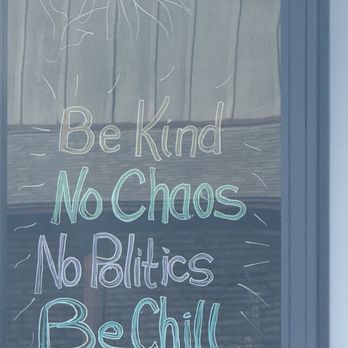 Be Kind
No Chaos
No Politics
Be Chill